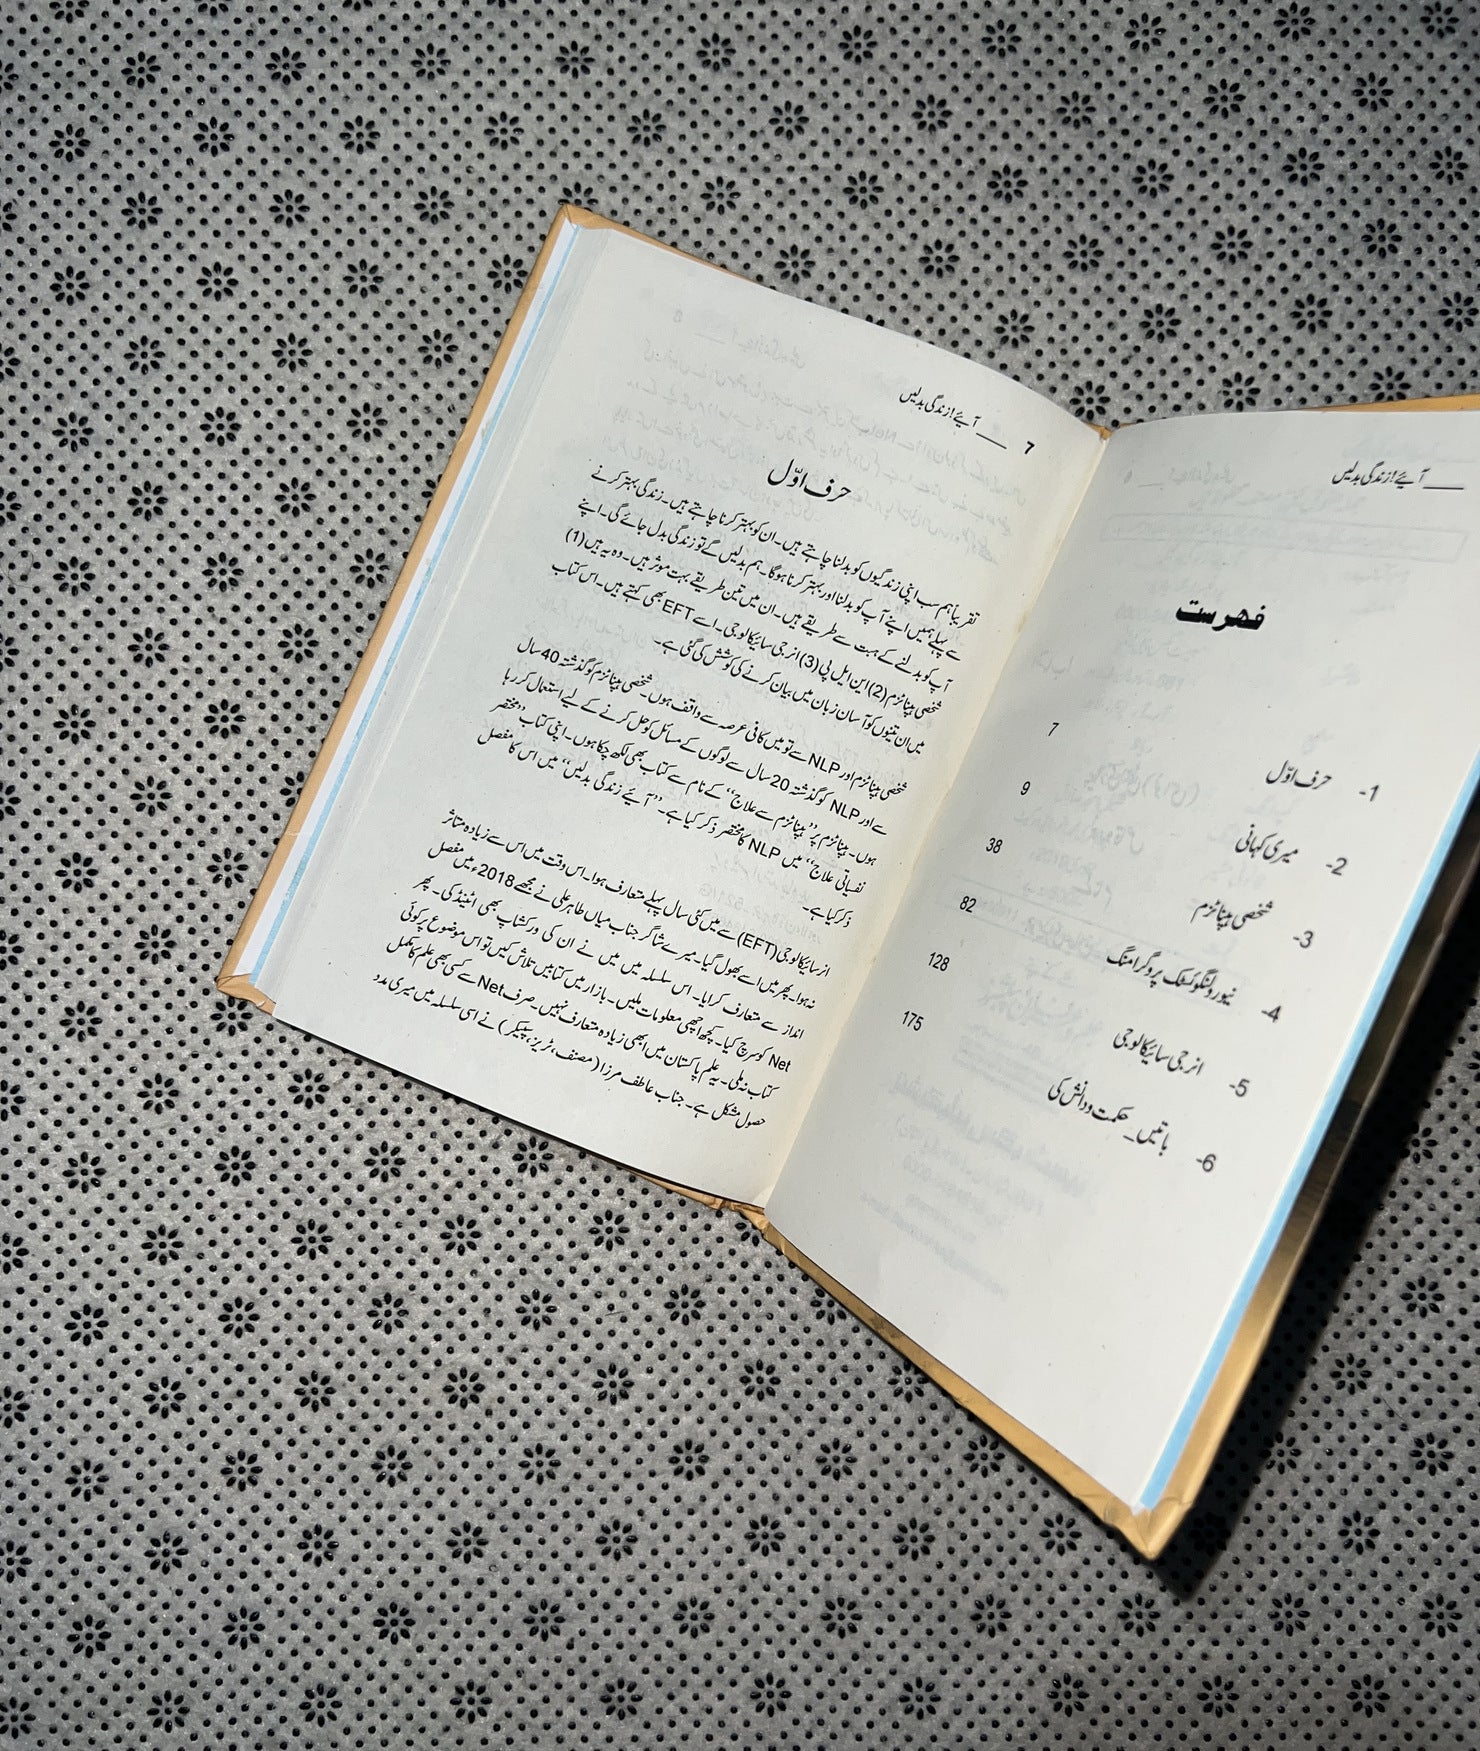 آیئے! زندگی بدلیں
فہرست
1- حرف اوّل 7
2- میری کہانی 9
3- شخصی ہپناٹزم 38
4- نیورولنگوئسٹک پروگرامنگ 82
5- انرجی سائیکالوجی 128
6- باتیں۔ حکمت ودانش کی 175
آیئے! زندگی بدلیں 7
حرف اوّل
تقریباً ہم سب اپنی زندگیوں کو بدلنا چاہتے ہیں۔ ان کو بہتر کرنا چاہتے ہیں۔ زندگی بہتر کرنے
سے پہلے ہمیں اپنے آپ کو بدلنا اور بہتر کرنا ہوگا۔ ہم بدلیں گے تو زندگی بدل جائے گی۔ اپنے
آپ کو بدلنے کے بہت سے طریقے ہیں۔ ان میں تین طریقے بہت موثر ہیں۔ وہ یہ ہیں (1)
شخصی ہپناٹزم (2) این ایل پی (3) انرجی سائیکالوجی۔ اسے EFT بھی کہتے ہیں۔ اس کتاب
میں ان تینوں کو آسان زبان میں بیان کرنے کی کوشش کی گئی ہے۔
شخصی ہپناٹزم اور NLP سے تو میں کافی عرصہ سے واقف ہوں۔ شخصی ہپناٹزم کو گذشتہ 40 سال
سے اور NLP کو گذشتہ 20 سال سے لوگوں کے مسائل کو حل کرنے کے لیے استعمال کر رہا
ہوں۔ ہپناٹزم پر ”ہپناٹزم سے علاج“ کے نام سے کتاب بھی لکھ چکا ہوں۔ اپنی کتاب ”مختصر
نفسیاتی علاج“ میں NLP کا مختصر ذکر کیا ہے۔ ”آیئے زندگی بدلیں“ میں اس کا مفصل
ذکر کیا ہے۔
انرسائیکالوجی (EFT) سے میں کئی سال پہلے متعارف ہوا۔ اس وقت میں اس سے زیادہ متاثر
نہ ہوا۔ پھر میں اسے بھول گیا۔ میرے شاگر جناب میاں طاہر علی نے مجھے 2018ء میں مفصل
انداز سے متعارف کرایا۔ اس سلسلہ میں میں نے ان کی ورکشاپ بھی اٹینڈ کی۔ پھر
Net کو سرچ کیا۔ کچھ اچھی معلومات ملیں۔ بازار میں کتابیں تلاش کیں تو اس موضوع پر کوئی
کتاب نہ ملی۔ یہ علم پاکستان میں ابھی زیادہ متعارف نہیں۔ صرف Net سے کسی بھی علم کا مکمل
حصول مشکل ہے۔ جناب عاطف مرزا (مصنف، ٹرینر، سپیکر) نے اسی سلسلہ میں میری مدد